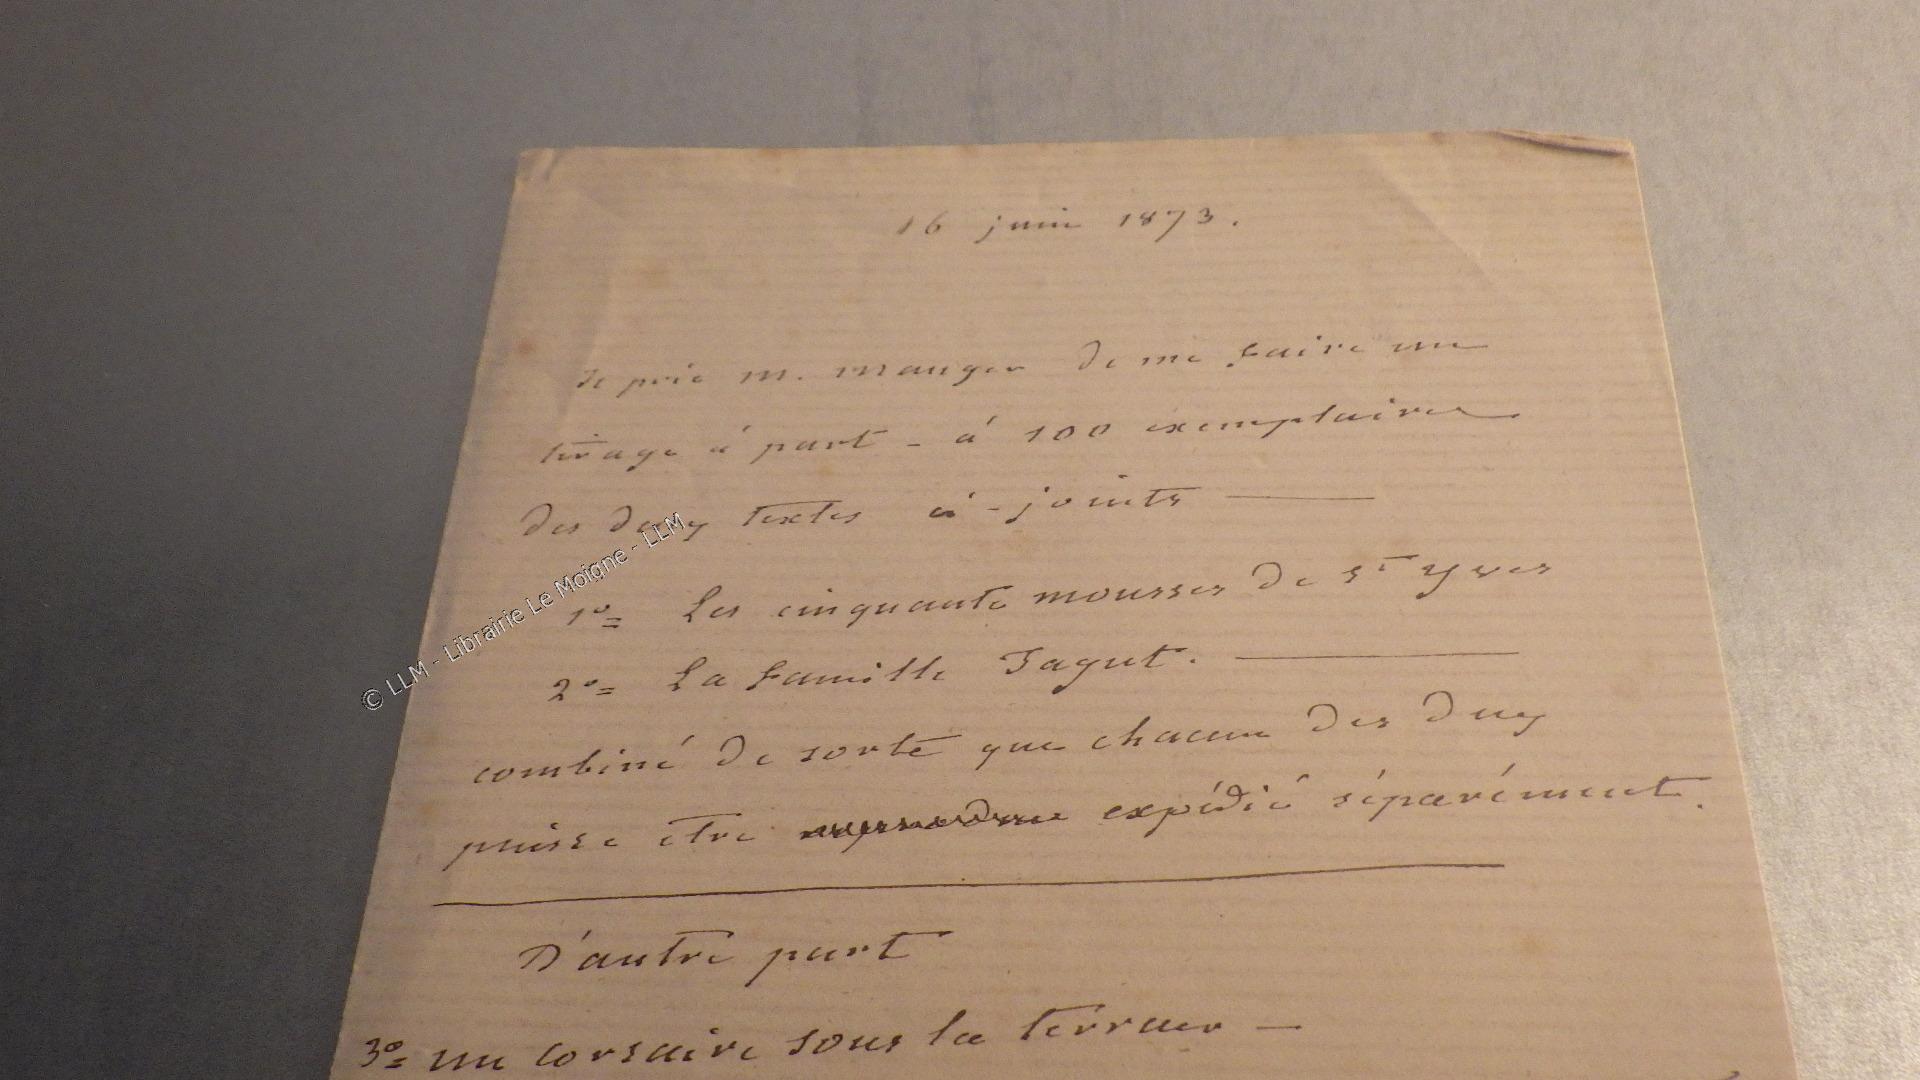 16 juin 1873.
Je prie M. Mauger de me faire un
tirage à part - à 100 exemplaires
des deux textes ci-joints —
1º= Les cinquante mousses de St Yves
2º= La famille Jagut. —
combiné de sorte que chacun des deux
puisse être expédié séparément.
D'autre part
3º= un corsaire sous la terreur —
© LLM - Librairie Le Moigne - LLM